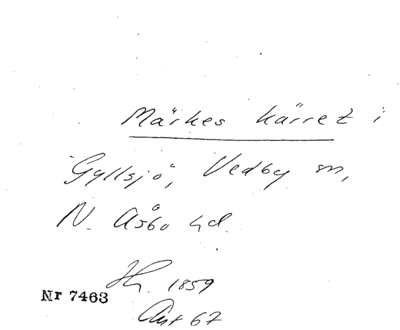 Märkes kärret i
Gyllsjö, Vedby sn,
N. Åsbo hd.
1859
Nr 7463
67